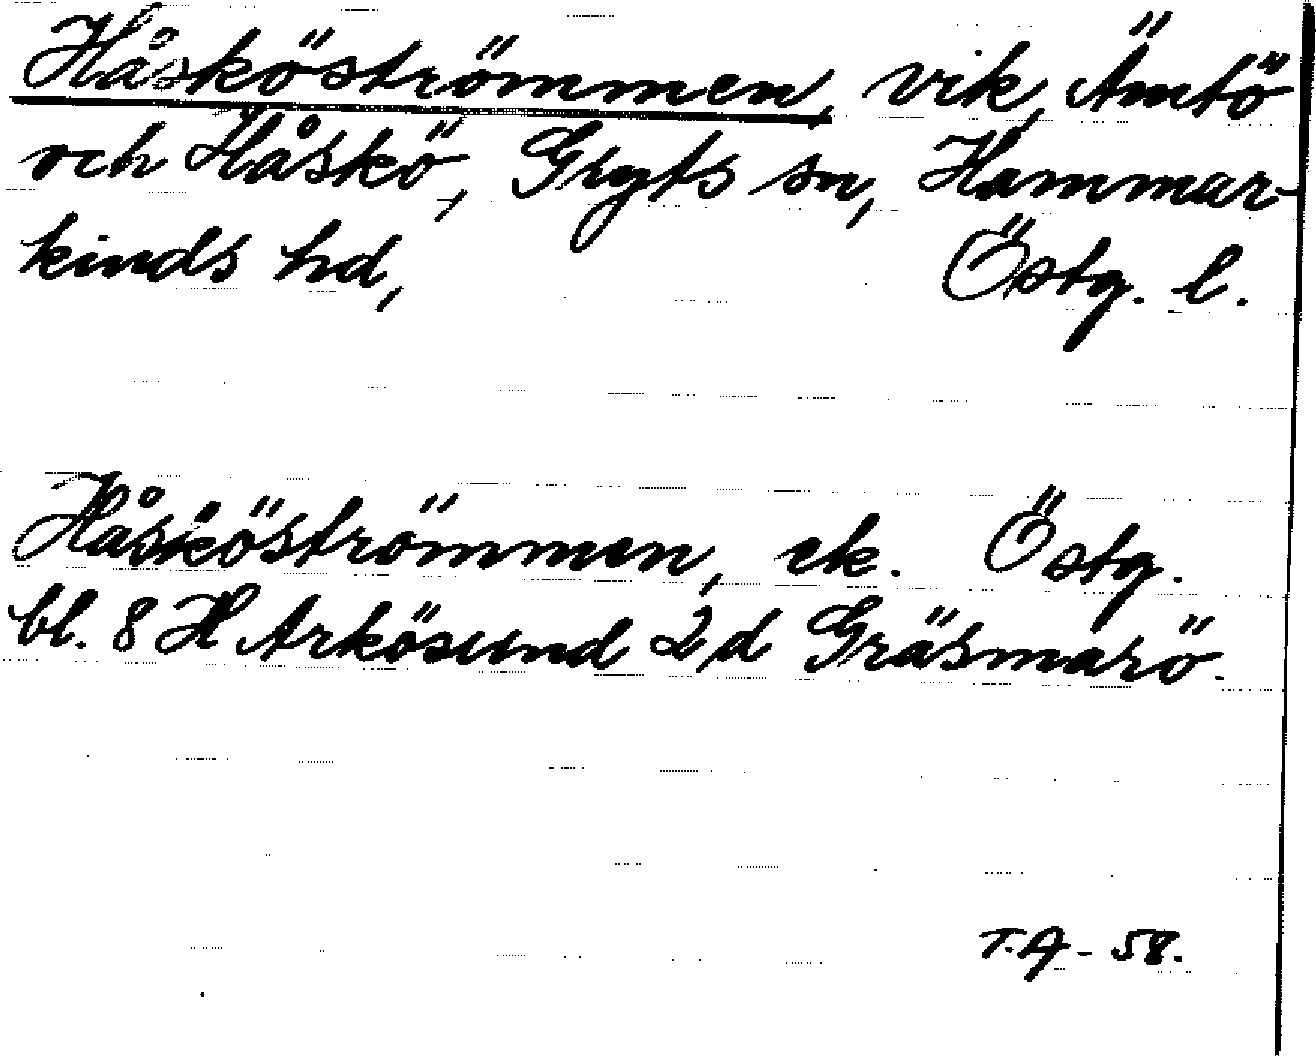 Håsköströmmen, vik, Ämtö
och Håskö, Gryts sn, Hammar-
kinds hd, Östg. l.
Håsköströmmen, ek. Östg.
bl. 8 H Arkösund 2 d Gräsmarö.
T.A - 58.